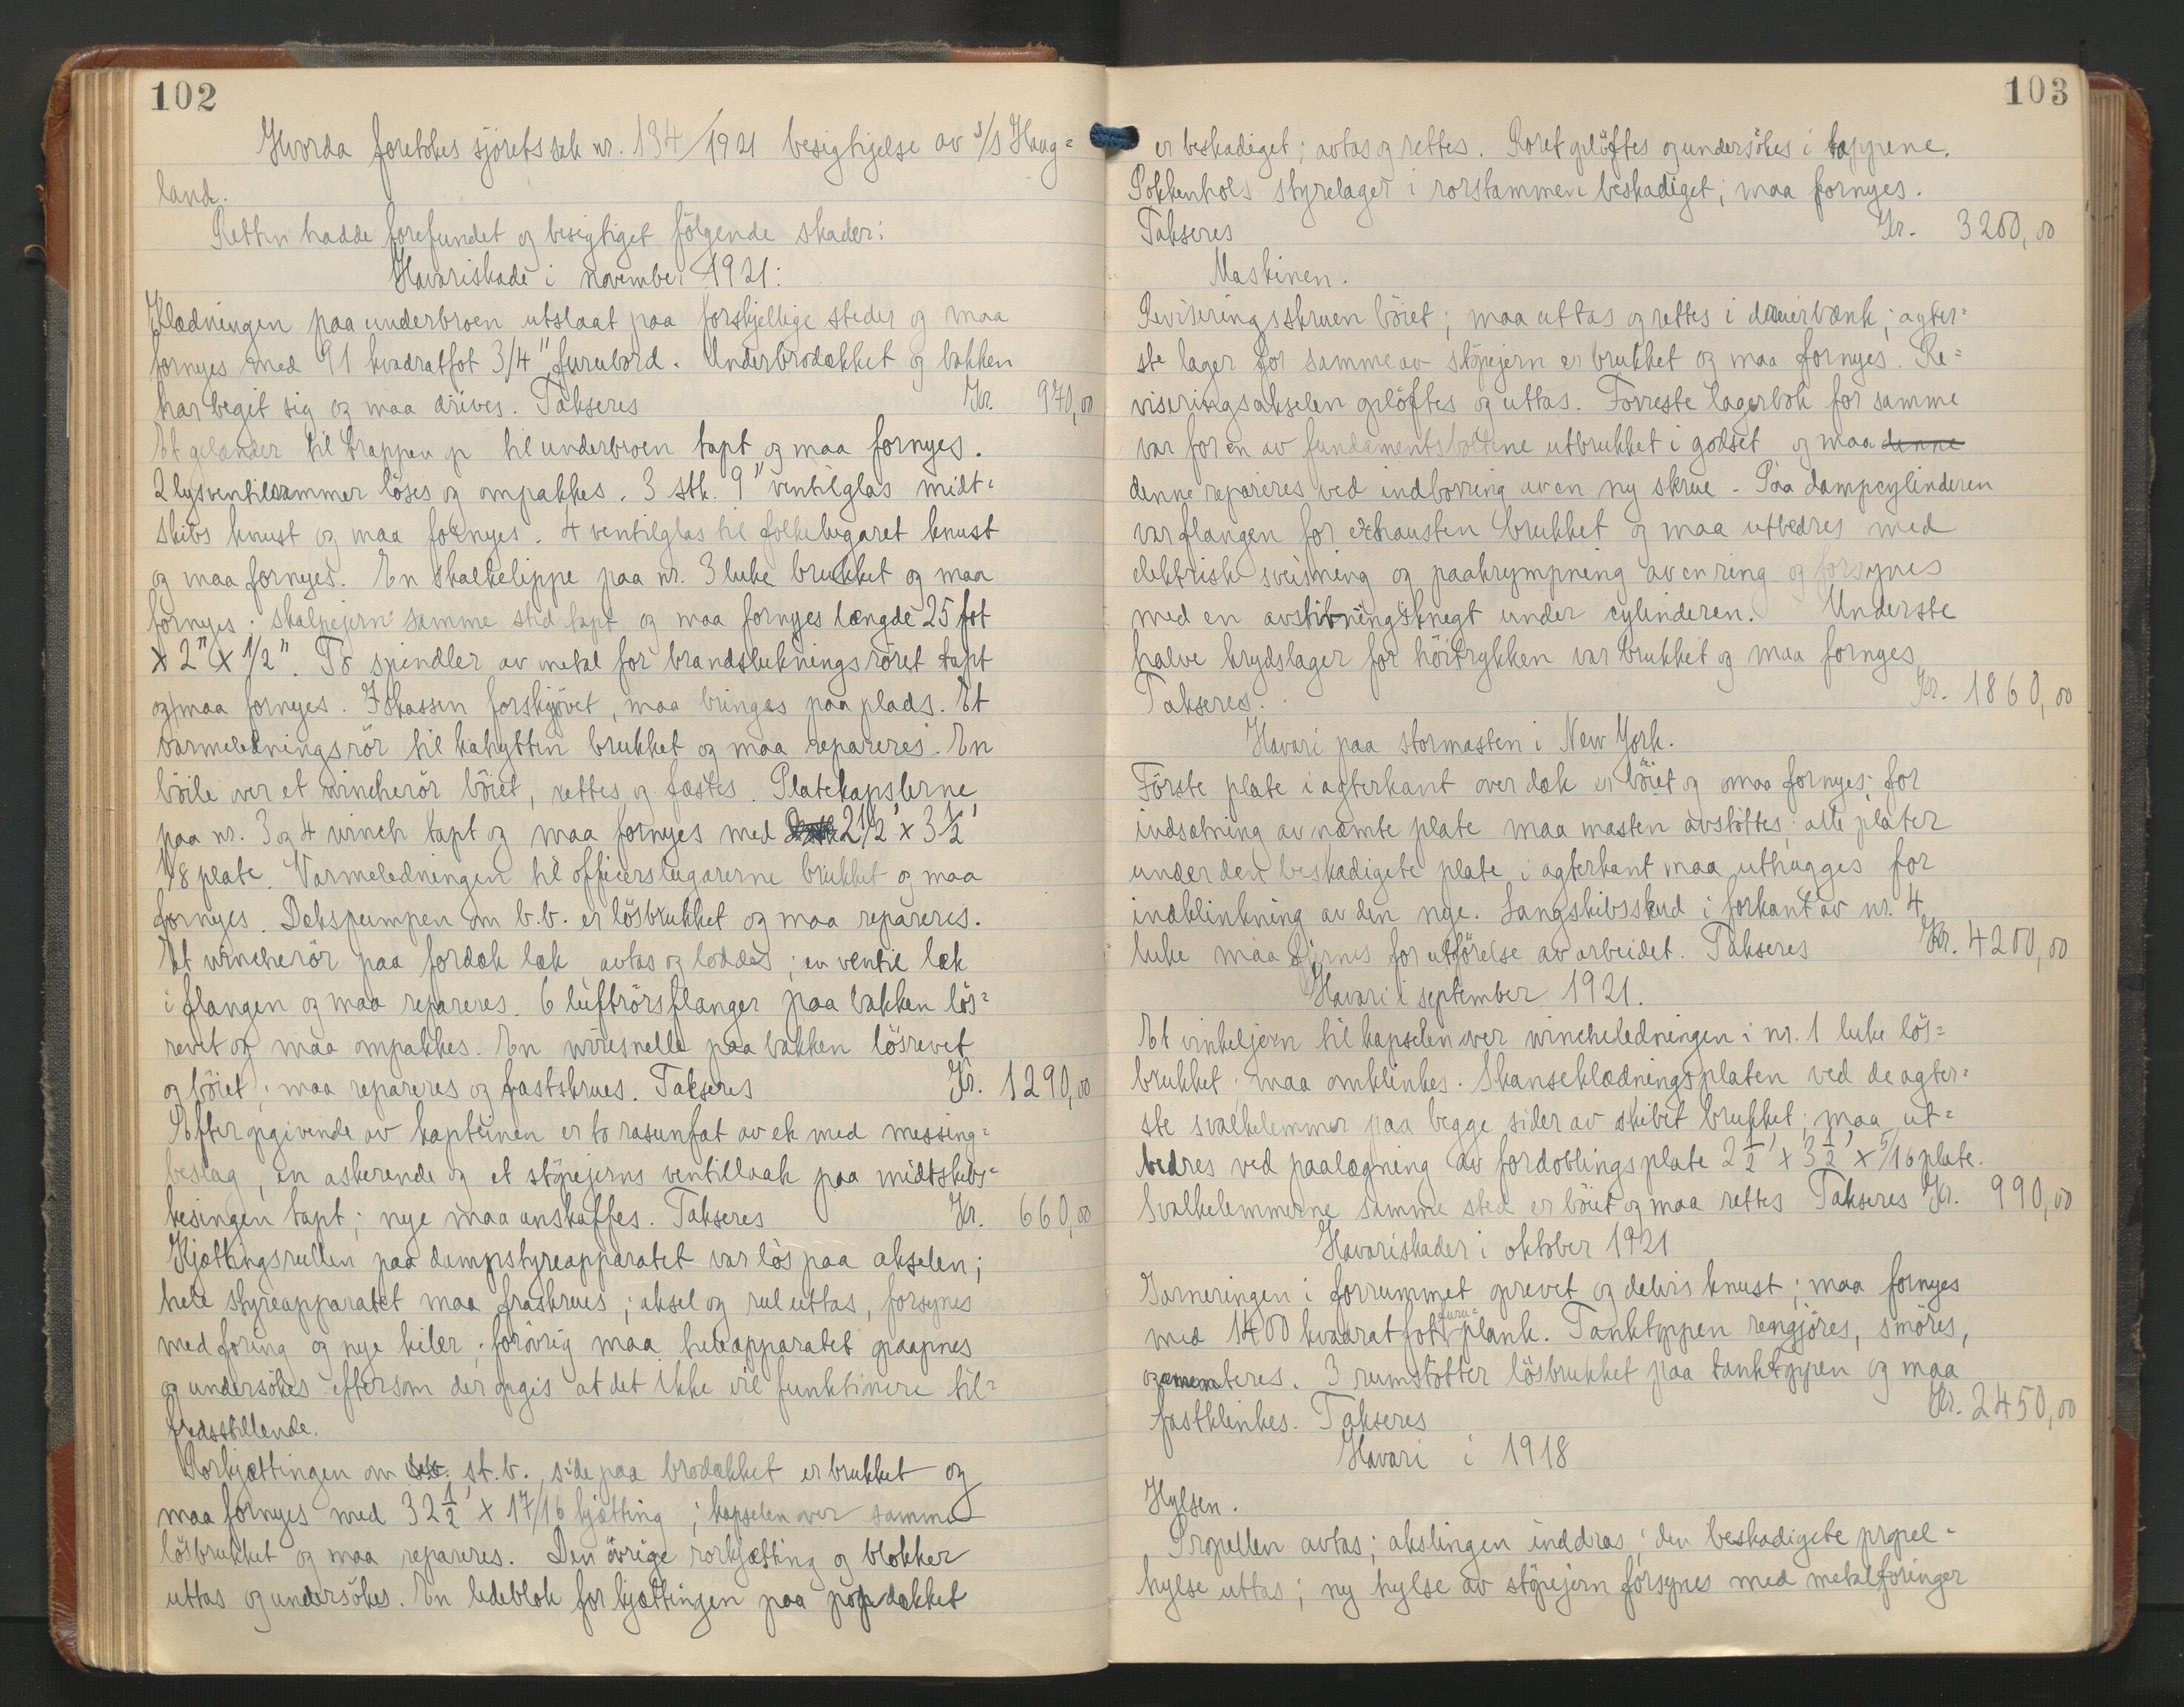 102
Hvorda foretokes sjöretssak nr. 134/1921 besigtjelse av s/s Haug=
land.
Retten hadde forefundet og besigtiget fölgende skader:
Havariskade i november 1921:
Klædningen paa underbroen utslaat paa forskjellige steder og maa
fornyes med 91 kvadratfot 3/4" furubord. Underbrodækket og bakken
har begit sig og maa drives. Takseres Kr. 970,00
Et gelænder til trappen op til underbroen tapt og maa fornyes.
2 lysventilrammer löses og ompakkes. 3 stk. 9" ventilglas midt=
skibs knust og maa fornyes. 4 ventilglas til folkelugaret knust
og maa fornyes. En skalkelippe paa nr. 3 luke brukket og maa
fornyes; skalkejern samme sted tapt og maa fornyes længde 25 fot
x 2" x 1/2". To spindler av metal for brandslukningsröret tapt
og maa fornyes. Iskassen forskjövet, maa bringes paa plads. Et
varmeledningsrör til kahytten brukket og maa repareres. En
böile over et wincherör böiet, rettes og fæstes. Platekapslerne
paa nr. 3 og 4 winch tapt og maa fornyes med 2 1/2' x 3 1/2'
1/8 plate. Varmeledningen til officerslugarerne brukket og maa
fornyes. Dekspumpen om b.b. er lösbrukket og maa repareres.
Et wincherör paa fordæk læk avtas og loddes; en ventil læk
i flangen og maa repareres. 6 luftrörsflanger paa bakken lös=
revet og maa ompakkes. En wiresnelle paa bakken lösrevet
og böiet; maa repareres og fastskrues. Takseres Kr. 1290,00
Efter opgivende av kapteinen er to rasunfat av ek med messing=
beslag, en askerende og et stöpejerns ventillaak paa midtskibs=
kesingen tapt; nye maa anskaffes. Takseres Kr. 660,00
Kjættingsrullen paa dampstyreapparatet var lös paa akselen;
hele styreapparatet maa fraskrues; aksel og rul uttas, forsynes
med foring og nye kiler; forövrig maa heleapparatet opaapnes
og undersökes eftersom der opgis at det ikke vil funktionere til=
fredsstillende.
Rorkjættingen om st.b. side paa brodækket er brukket og
maa fornyes med 32 1/2' x 17/16 kjætting; kapselen over samme
lösbrukket og maa repareres. Den övrige rorkjætting og blokker
uttas og undersökes. En ledeblok for kjættingen paa poopdækket
103
er beskadiget; avtas og rettes. Roret oplöftes og undersökes i tappene.
Pokkenholts styrelager i rorstammen beskadiget; maa fornyes.
Takseres Kr. 3200,00
Maskinen.
Reviseringsskruen böiet; maa uttas og rettes i dreierbænk; agter=
ste lager for samme av stöpejern er brukket og maa fornyes. Re=
viseringsakselen oplöftes og uttas. Forreste lagerbok for samme
var for en av fundamentsboltene utbrukket i godset og maa denne
denne repareres ved indboring av en ny skrue. Paa dampcylinderen
var flangen for exhausten brukket og maa utbedres med
elektriske sveisning og paakrympning av en ring og forsynes
med en avstivningsknegt under cylinderen. Underste
halve krydslager for höitrykken var brukket og maa fornyes
Takseres. Kr. 1860,00
Havari paa stormasten i New York.
Förste plate i agterkant over dæk er böiet og maa fornyes; for
indsætning av næmte plate maa masten avstöttes; alle plater
under den beskadigete plate i agterkant maa uthugges for
indklinkning av den nye. Langskibsskud i forkant av nr. 4
luke maa fjernes for utförelse av arbeidet. Takseres Kr. 4200,00
Havari i september 1921.
Et vinkeljern til kapselen over wincheledningen i nr. 1 luke lös=
brukket; maa omklinkes. Skanseklædningsplaten ved de agter=
ste svalkelemmer paa begge sider av skibet brukket; maa ut=
bedres ved paalægning av fordoblingsplate 2 1/2' x 3 1/2' x 5/16 plate.
Svalkelemmerne samme sted er böiet og maa rettes Takseres Kr. 990,00
Havariskader i oktober 1921
Garneringen i forrummet oprevet og delvis knust; maa fornyes
med 1400 kvadratfot furu= plank. Tanktoppen rengjöres, smöres,
og cementeres. 3 rumstötter lösbrukket paa tanktoppen og maa
fastklinkes. Takseres Kr. 2450,00
Havari i 1918
Hylsen.
Propellen avtas; akslingen inddras; den beskadigete propel=
hylse uttas; ny hylse av stöpejern forsynes med metalforinger